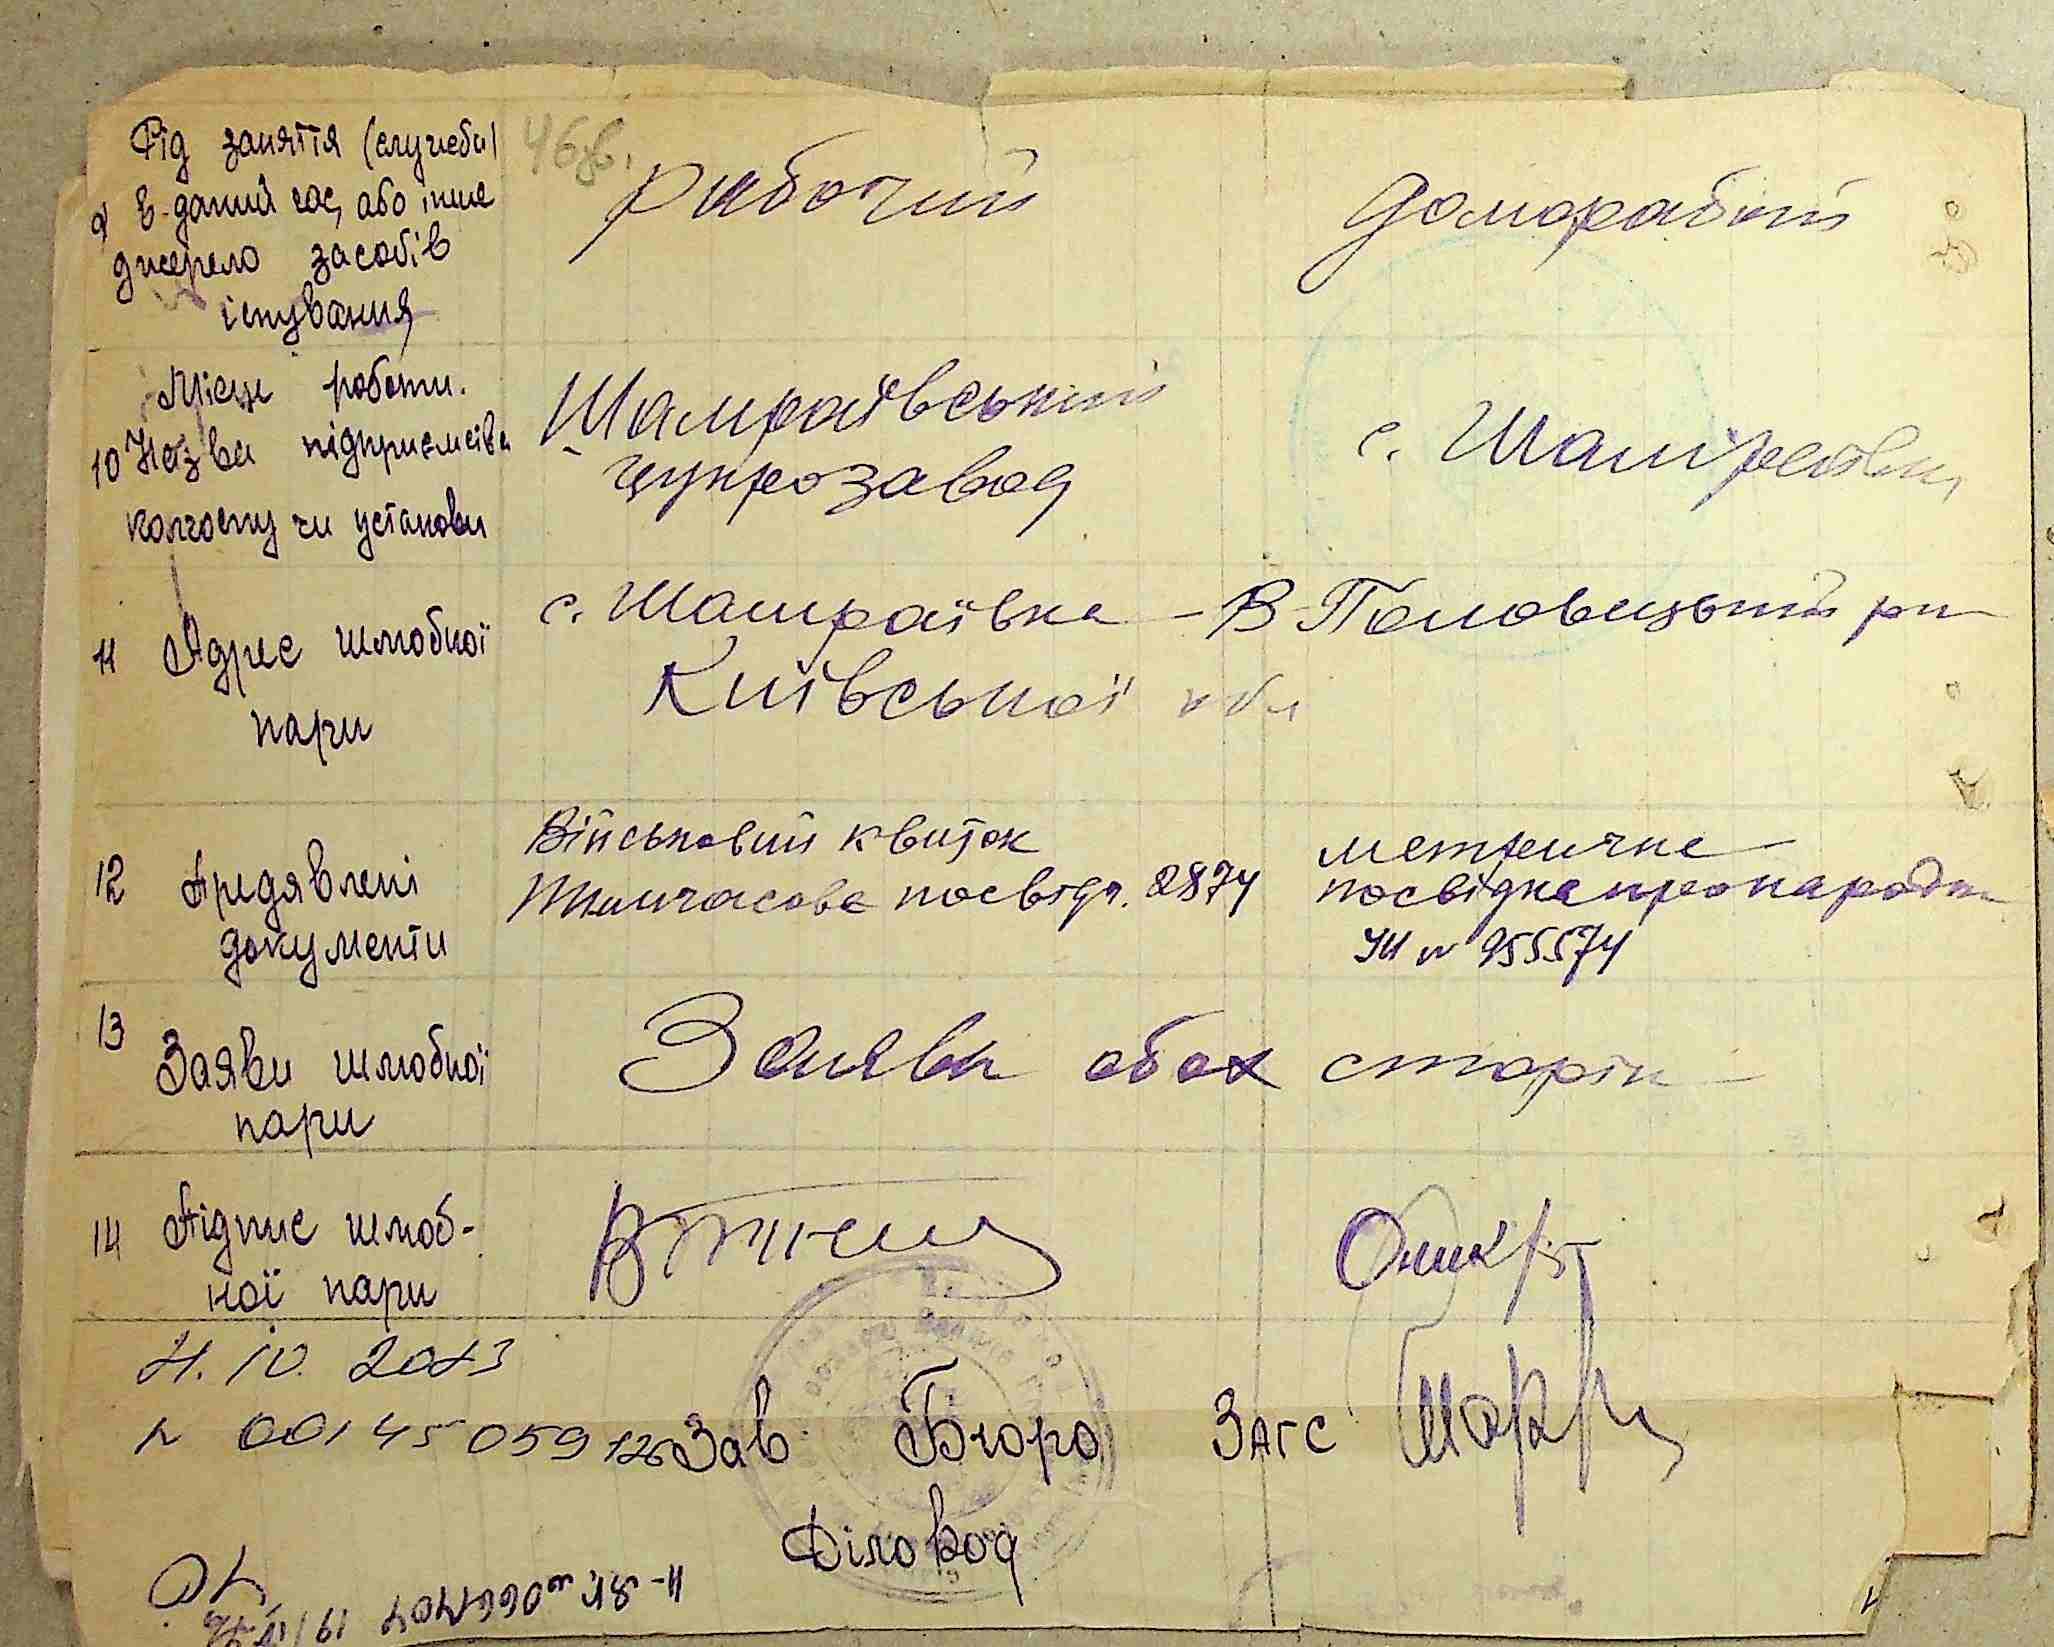 Рід заняття (служби)
46зв.
рабочий
домораб
9 В даний час, або інше
джерело засобів
існування
Місце роботи.
10 Назва підприємства
колгоспу чи установи
Шамраївський
цукрозавод
с. Шамраївка
11 Адрес шлюбної
пари
с. Шамраївка - В-Половецький р-н
Київської обл
12 Предявлені
документи
Військовий квиток
Тимчасове посвідч. 2874
метричне
посвідка про народж
УЖ № 955574
13
Заяви шлюбної
пари
Заяви обох сторін
14 Підпис шлюб-
ної пари
Оник
11. IV. 2013
N 00145059126
Зав. Бюро ЗАГС
Діловод